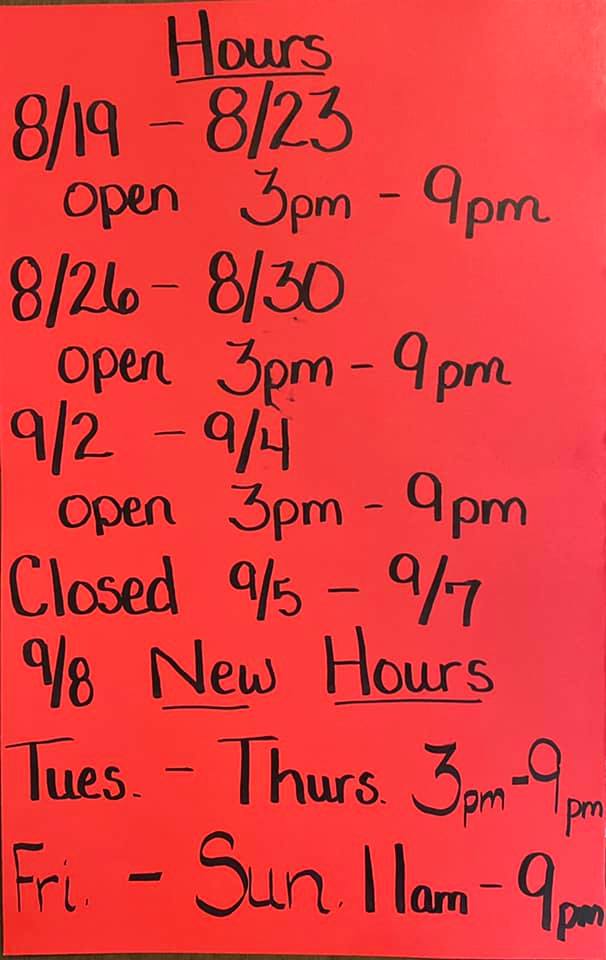 Hours
8/19 - 8/23
open 3pm - 9pm
8/26 - 8/30
open 3pm - 9pm
9/2 - 9/4
open 3pm - 9pm
Closed 9/5 - 9/7
9/8 New Hours
Tues. - Thurs. 3pm-9pm
Fri. - Sun. 11am - 9pm